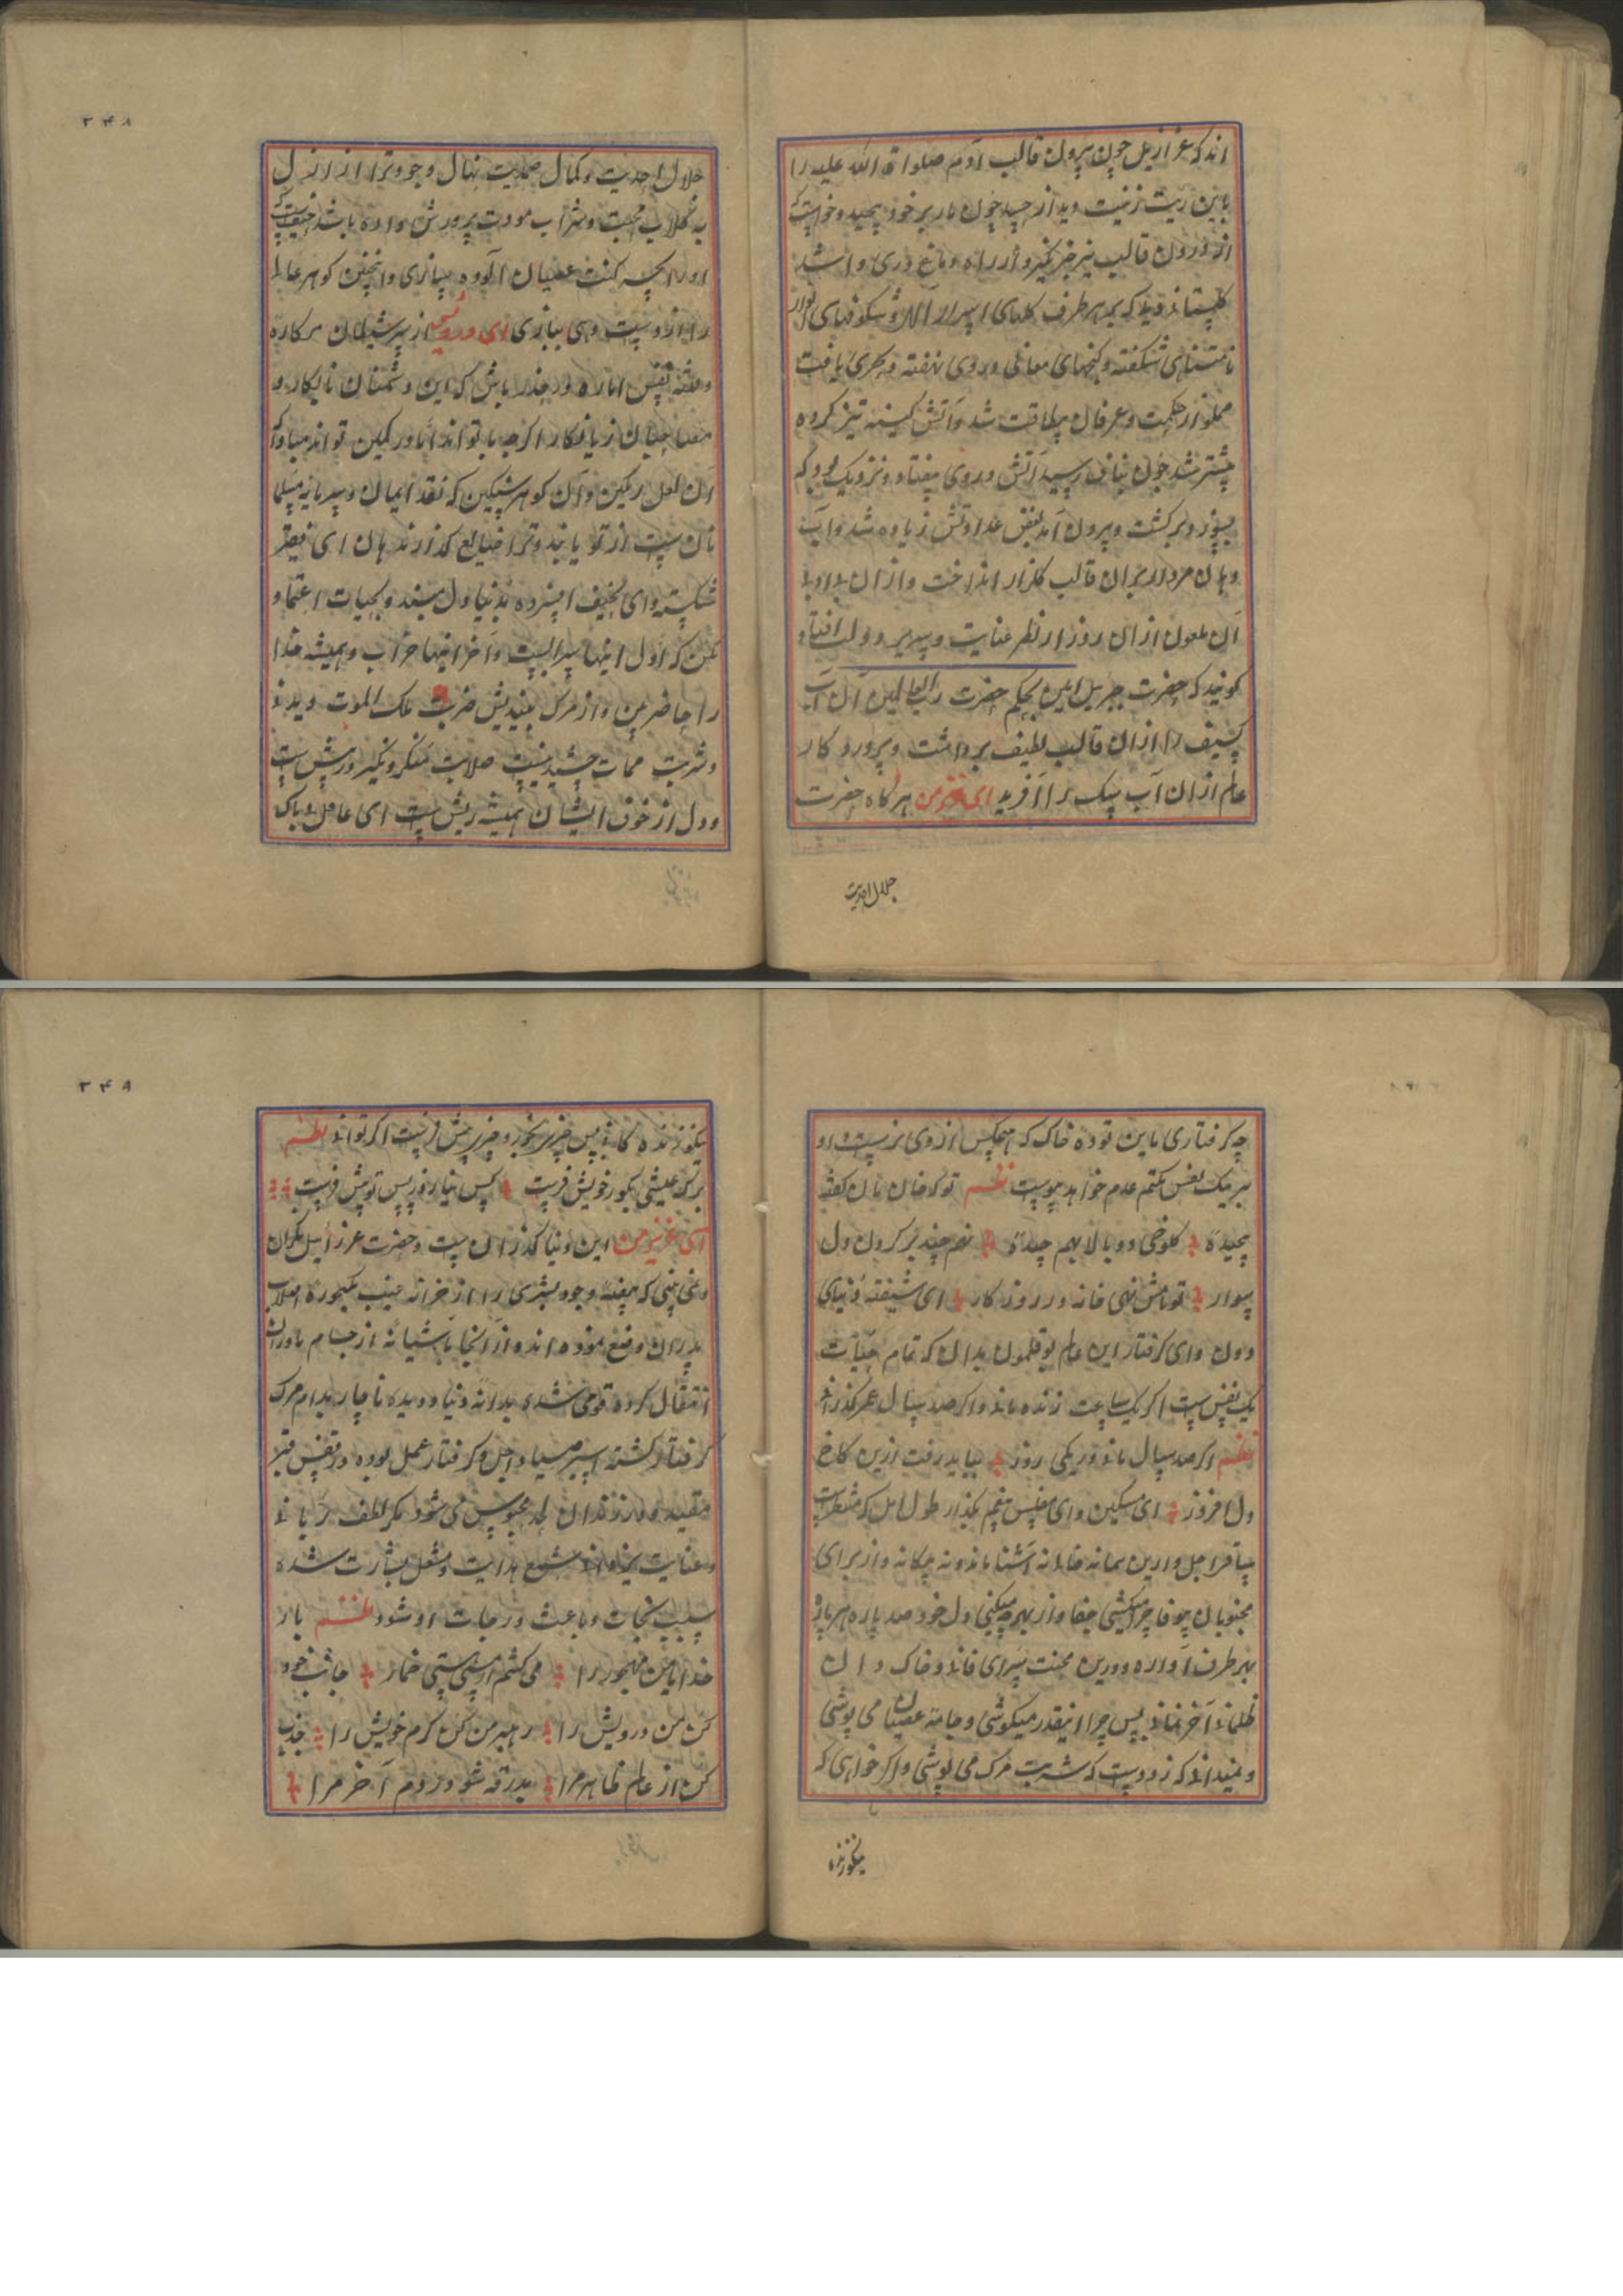 اند که عزازیل چون بیرون قالب آدم صلواة الله علیه را
باین زیب زینت دید از حسد چون مار بر خود پیچید و خواست که
از درون قالب نیز خبر گیرد از راه دماغ در وی
گلستانی دید که بهر طرف گلهای اسرار و شکوفهای انوار
نامتناهی شگفته و گنجهای معانی در وی نهفته یافت
مملو از حکمت و عرفان بیطاقت شد و آتش کینه تیز کرده
پیشتر شد چون بناف رسید آتش در وی بیفتاد و نزدیک بود که
بسوزد برگشت و بیرون آمد بغض عداوتش زیاده شد و آب
دهان مردار بران قالب گلزار انداخت و ازان
آن ملعون ازان روز از نظر عنایت و سریر دولت افتاد
گویند که حضرت جبریل امین بحکم حضرت رب العالمین آن آب
کسیف را ازان قالب لطیف برداشت و پروردکار
عالم ازان آب سک را آفرید ای عزیز من هر گاه حضرت
جلال احدیت
جلال احدیت و کمال صمدیت نهال وجود ترا از ازل
به گلاب محبت و شراب مودت پرورش داده باشد حیف است که
او را بکنت عصیان آلوده سازی و انچنین گوهر عالم
را از دست دهی بیازی ای درویش از شیطان مرکاره
و نفس اماره در حذر باش که این دشمنان نابکار و
مصاحبان زیانکار اگرچه با تو اند اما در کمین تو اند مبادا که
آن لعل رنگین و آن گوهر سنگین که نقد ایمان و سرمایه مسلما
نان است از تو یابند و ترا ضایع گذارند هان ای فقیر
شکسته وای نحیف افسرده بدنیا دل مبند و بحیات اعتماد
مکن که اول اینها سرابست و آخر اینها خراب و همیشه خدا
را حاضر بین و از مرگ بیندیش ضربت ملک الموت دیدنی
و شربت ممات چشیدنیست صلابت منکر و نکیر در پیش است
و دل از خوف ایشان همیشه ریش است ای غافل بی باک
چه گرفتاری باین توده خاک که هیچکس از وی نرست و او
بهر یک نفس بکتم عدم خواهد پیوست نظم تو که خان مان
پیچیدۀ کلوخی دو بالا بهم چیدۀ بهم چند بر کردن دل
سوار تو نامش نهی خانه در روزگار ای شیفتۀ دنیای
دون وای گرفتار این عالم بوقلمون بدان که تمام حیات
یک نفس است اگر یک ساعت زنده مانی و اگر صد سال عمر گذرانی
نظم اگر صد سال مانی و ر یکی روز بباید رفت ازین کاخ
دل افروز ای مسکین وای مفلس بگذار طول امل که منتظر است
مسافر اجل و ازین بمانه خانه نه آشنا ماند و نه بیگانه و از برای
محبوبان بیوفا چرا میکشی جفا و از بهر چه میکنی دل خود صد پاره هر پاره
بهر طرف آواره و درین محنت سرای فانی و خاک دان
ظلمانی آخر نمانی پس چرا اینقدر میکوشی و جامۀ عصیان می پوشی
و نمیدانی که زود است که شربت مرگ می نوشی و اگر خواهی که
بگور زنده
بگور زنده مانی پس چیزی بخور و چیزی پیش فرست اگر توانی نظم
برگ عیشی بگور خویش فرست کس نیارد ز پس تو پیش فرست
ای عزیز من این دنیا گذران است و حضرت عزرائیل نگران
و نمی بینی که وجود بشری را از خزانه غیب اصلاب
پدران وضع نموده اند و از آنجا بآشیانه ارحام مادران
انتقال کرده قومی شدی بدانه دنیا دویده ناچار بدام مرگ
گرفتار گشته اسیر صیاد اجل و گرفتار عمل بوده در قفس قبر
مقید و در زندان لحد محبوس می شود مگر لطف ربانی
و عنایت یزدانی شمع هدایت و مشعل بشارت شده
سبب نجات و باعث درجات او شود نظم بار
خدایا من مهجور را می کشم از مستی هستی خمار جانب خود
کن من درویش را رهبر من کن کرم خویش را جذب
کن از عالم ظاهر مرا بدرقه شو در دم آخر مرا